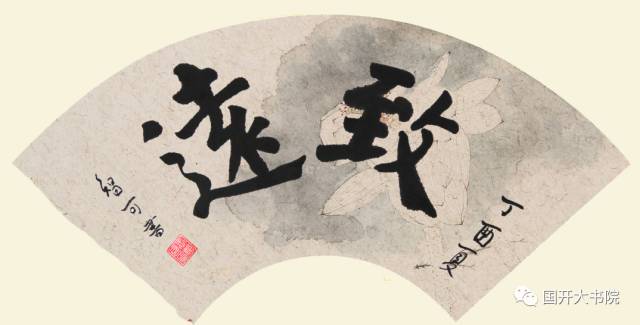 丁酉夏
致遠
智可書
国开大书院